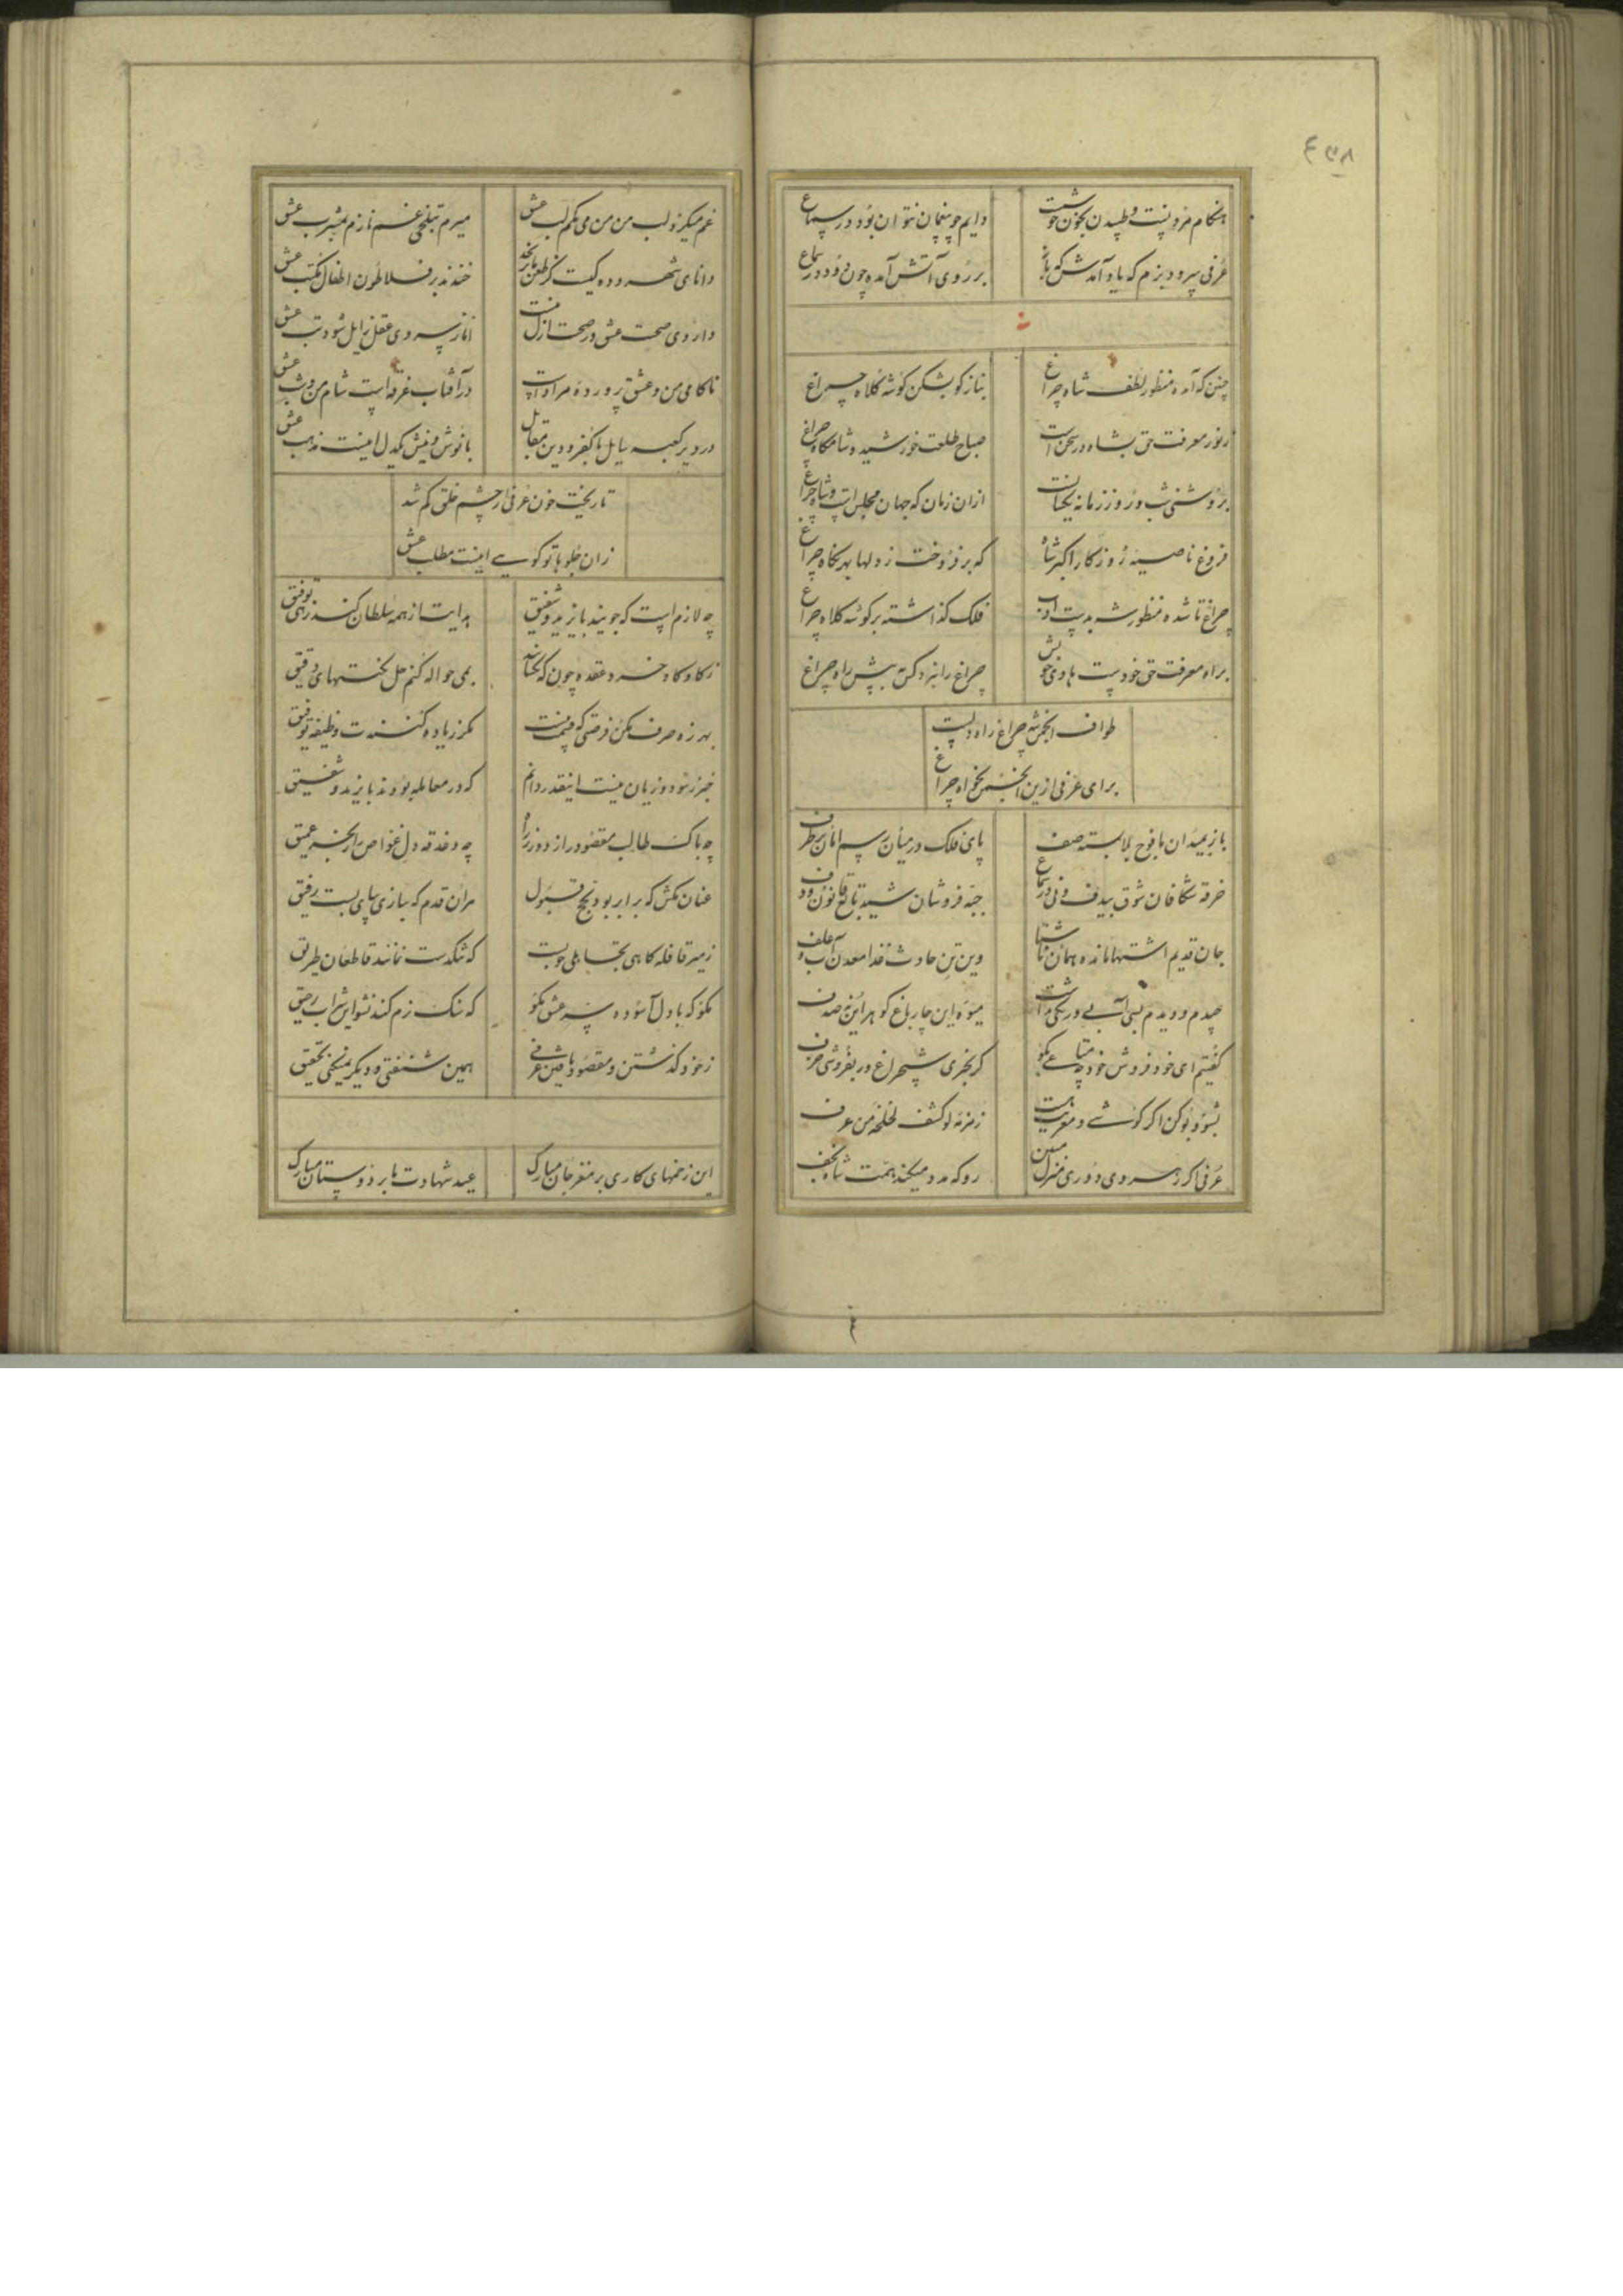 ۴۵۸
هنگام مرد نیست و طپیدن بخون خوشست
دایم چو بیغمان نتوان بود در سماع
عرفی سرود بزم که یاد آمدش که باز
بر روی آتش آمده چون دود در سماع
چنین که آمده منظور لطف شاه چراغ
بناز کو بشکن گوشه کلاه چراغ
ز نور معرفت حق بشاه در سخن است
صباح طلعت خورشید و شامگاه چراغ
بروشنی شب و روز زمانه یکسانست
ازان زمان که جهان مجلس است و شاه چراغ
فروغ ناصیه روزگار اکبر شاه
که برفروخت ز دلها بهر نگاه چراغ
چراغ تا شده منظور شه بدست ادب
فلک گذاشته بر گوشه کلاه چراغ
براه معرفت حق خودست هادی خویش
چراغ را نبرد کس به پیش راه چراغ
طواف انجمن شه چراغ راه دلست
برای عرفی ازین انجمن بخواه چراغ
باز بمیدان ما فوج بلا بسته صف
پای فلک در میان رسم امان برطرف
خرقه شکافان شوق بیدف و نی در سماع
جبه فروشان شید تابع قانون و دف
جان قدیم اشتها مانده همان ناشتا
وین تن حادث غذا معدن آب و علف
چیدم و دیدم بسی آب بی و رنگی نداشت
میوه این چار باغ گوهر این نه صدف
گفتیم ای خود فروش خود چه متاعی بگو
گر بخری شبچراغ ور بفروشی خزف
بشنو و بو کن اگر گوشی و مغزیت هست
زمزمه لو کشف لخلخه من عرف
عرفی اگر رهروی دوری منزل مبین
رو که مدد میکند همت شاه نجف
غم میگزد لب من من می مکم لب عشق
میرم بتلخی غم نازم بمشرب عشق
دانای شهر و ده کیست کز طعن ما بخندد
خندند بر فلاطون اطفال مکتب عشق
داروی صحت عشق در صحت ازل نیست
اناز پیروی عقل زایل شود تب عشق
ناکامی من و عشق پرورده مراد است
در آفتاب غرقه است شام من و شب عشق
در دیر کعبه سایل با کفر و دین مقابل
با نوش و نیش یکدل اینست مذهب عشق
تا ریخت خون عرفی از چشم خلق گم شد
زان جلوها تو گویی اینست مطلب عشق
چه لازم است که جویند بایزید و شفیق
هدایت از همه سلطان کند زهی توفیق
ز کاوکاو خرد عقده چون که نگشاید
بمی حواله کنم حل نکتهای دقیق
بهرزه صرف مکن فرصتی که قیمت نیست
مگر زیاده کنندت وظیفه توفیق
خبر ز سود و زیان نیست اینقدر دانم
که در معامله بودند بایزید و شفیق
چه باک طالب مقصود را ز دوری راه
چه دغدغه دل غواص را ز بحر عمیق
عنان مکش که برابر بود بحج قبول
مران قدم که بیازی بپای بست رفیق
ز میر قافله گاهی تجاهلی خوبست
که تنگدست نمانند قاطعان طریق
مگو که با دل آسوده سر عشق مگو
که تنگ رزم کند نشو این شراب رحیق
ز خود گذشتن و مقصود یافتن عرفی
همین شنفتی و دیگر نمیکنی تحقیق
این زخمهای کاری بر مغز جان مبارک
عید شهادت ما بر دوستان مبارک